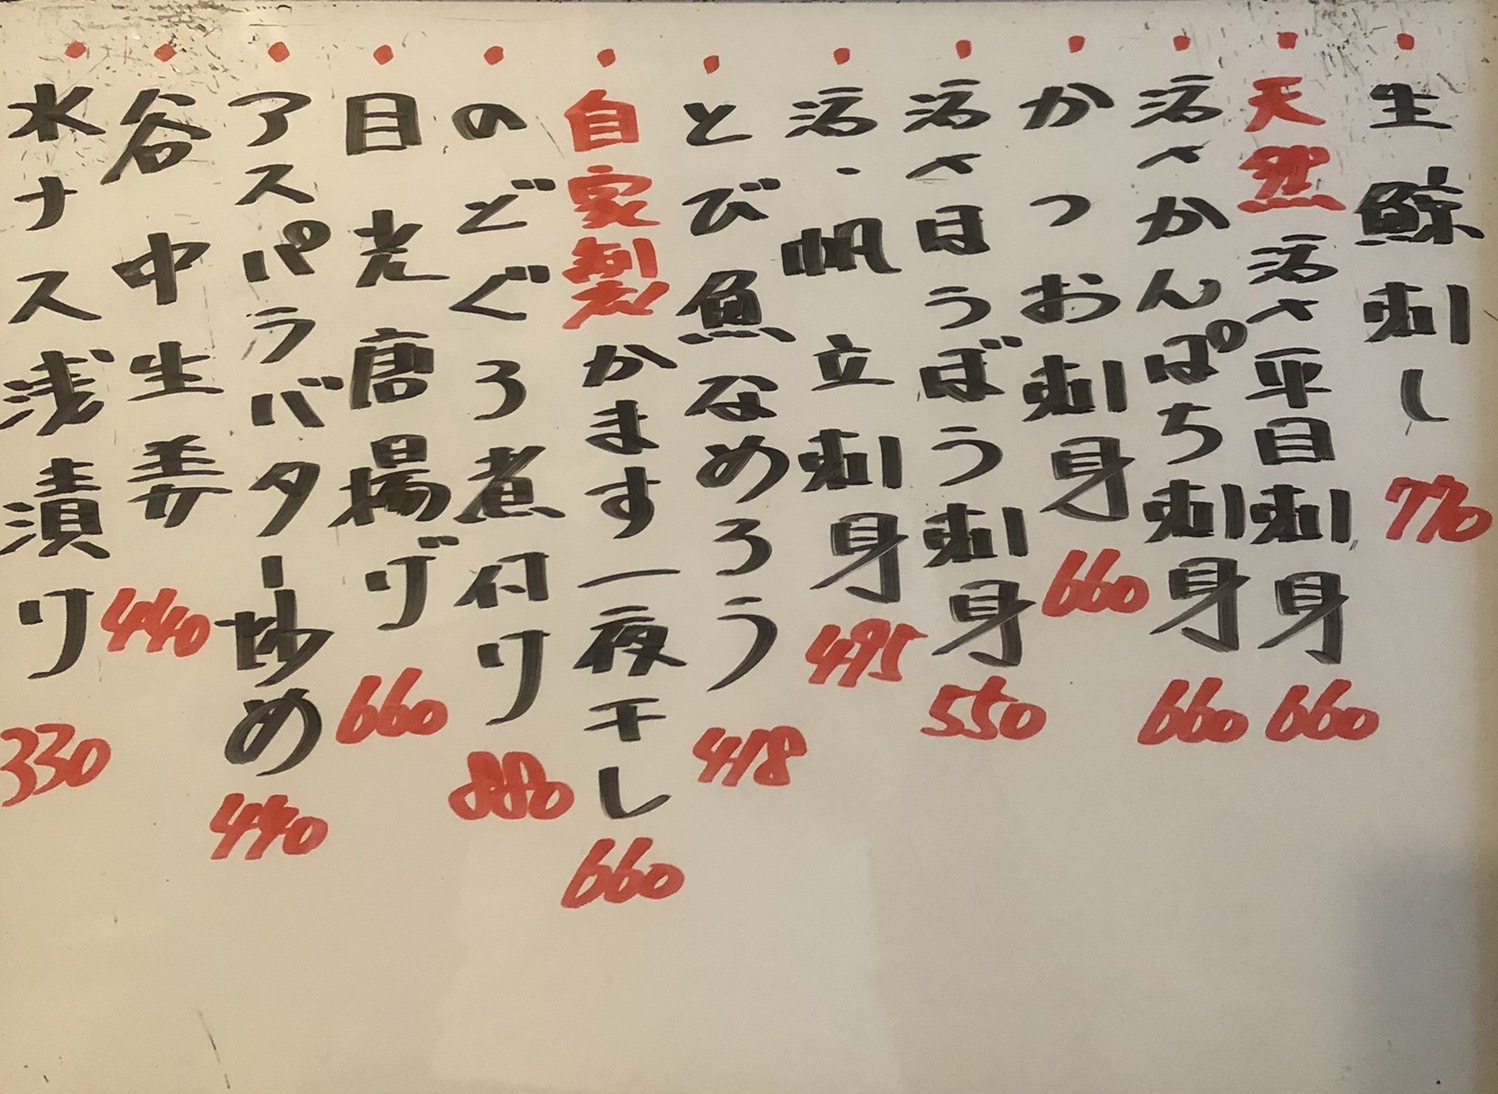 生鯨刺し 770
天然 活〆平目刺身 660
活〆かんぱち刺身 660
かつお刺身 660
活〆ほうぼう刺身 550
活・帆立刺身 495
とび魚なめろう 418
自家製かます一夜干し 660
のどぐろ煮付け 880
目光唐揚げ 660
アスパラバター炒め 440
谷中生姜 440
水ナス浅漬け 330